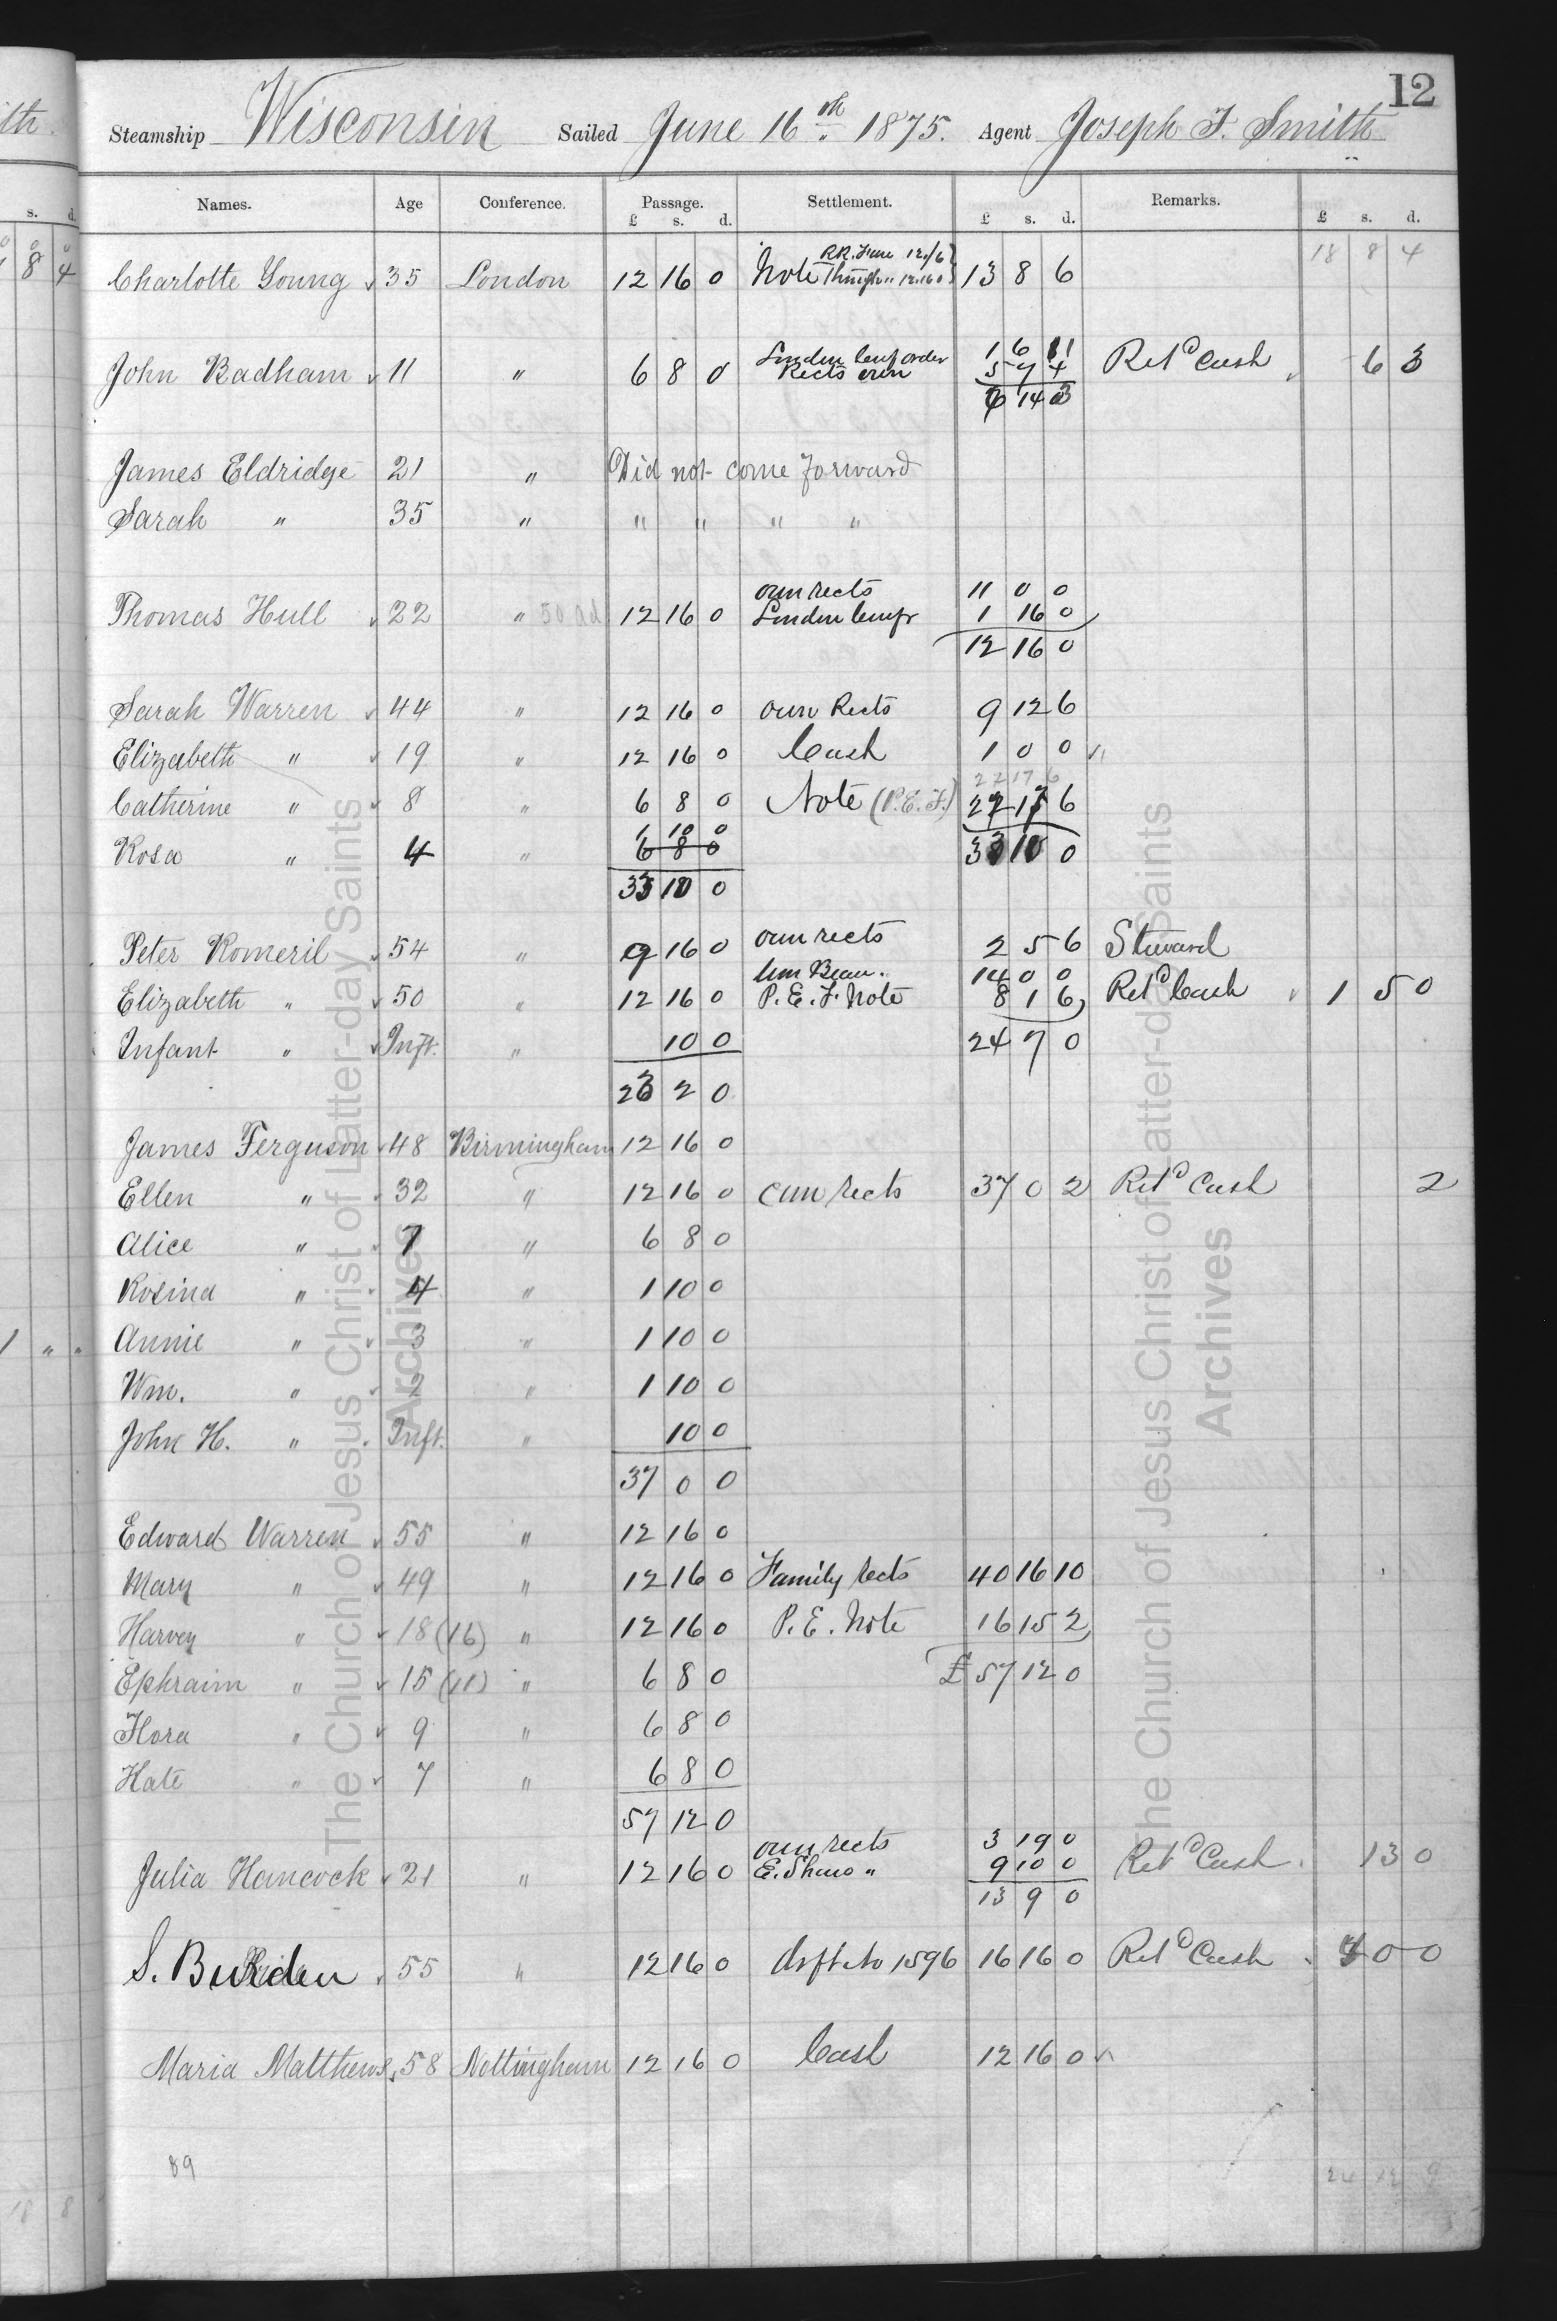 12
Steamship Wisconsin Sailed June 16th 1875. Agent Joseph F. Smith
Names. Age Conference. Passage. £ s. d. Settlement. £ s. d. Remarks. £ s. d.
18 8 4
R.R. Fare 12/6
Charlotte Young 35 London 12 16 0 Note 12.16.0 13 8 6
London Conf order 1 6 11
John Badham 11 " 6 8 0 Rects own 5 7 4 Retd Cash 6 3
6 14 3
James Eldridge 21 " Did not come forward
Sarah " 35 " " " " "
own rects 11 0 0
Thomas Hull 22 " 50 ad 12 16 0 London Conf 1 16 0
12 16 0
Sarah Warren 44 " 12 16 0 own Rects 9 12 6
Elizabeth " 19 " 12 16 0 Cash 1 0 0
22 17 6
Catherine " 8 " 6 8 0 Note (P.E.F.) 22 17 6
1 10 0
Rosa " 4 " 6 8 0 33 10 0
33 10 0
Peter Romeril 54 " 9 16 0 own rects 2 5 6 Steward
Wm Beau. 14 0 0
Elizabeth " 50 " 12 16 0 P.E.F. Note 8 1 6 Retd Cash 1 5 0
Infant " Inft. " 10 0 24 7 0
23 2 0
James Ferguson 48 Birmingham 12 16 0
Ellen " 32 " 12 16 0 own rects 37 0 2 Retd Cash 2
Alice " 7 " 6 8 0
Rosina " 4 " 1 10 0
Annie " 3 " 1 10 0
Wm. " 2 " 1 10 0
John H. " Inft. " 10 0
37 0 0
Edward Warren 55 " 12 16 0
Mary " 49 " 12 16 0 Family rects 40 16 10
Harvey " 18 (16) " 12 16 0 P.E. Note 16 15 2
Ephraim " 15 (11) " 6 8 0 £ 57 12 0
Flora " 9 " 6 8 0
Kate " 7 " 6 8 0
57 12 0
own rects 3 19 0
Julia Hancock 21 " 12 16 0 E. Shaw " 9 10 0 Retd Cash 13 0
13 9 0
S. Burden 55 " 12 16 0 drft No 1596 16 16 0 Retd Cash 4 0 0
Maria Matthews 58 Nottingham 12 16 0 Cash 12 16 0
89
24 12 9
The Church of Jesus Christ of Latter-day Saints
Archives
The Church of Jesus Christ of Latter-day Saints
Archives
ith.
s. d.
8 4
1 " "
18 8